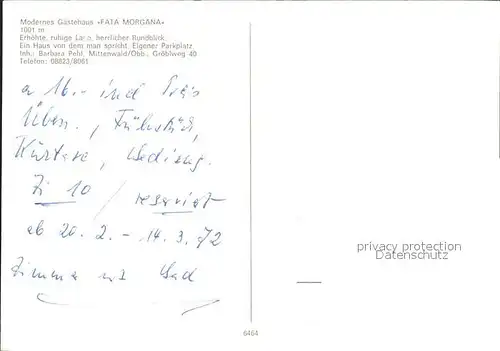 Modernes Gästehaus «FATA MORGANA»
1001 m
Erhöhte, ruhige Lage, herrlicher Rundblick.
Ein Haus von dem man spricht. Eigener Parkplatz
Inh.: Barbara Pehl, Mittenwald/Obb., Gröblweg 40
Telefon: 08823/8061
a 16.- incl Preis
Übern., Frühstück,
Kurtaxe, Bedieng.
Zi 10 / reserviert
ab 20.2. - 14.3.72
Zimmer mit Bad
privacy protection
Datenschutz
6464